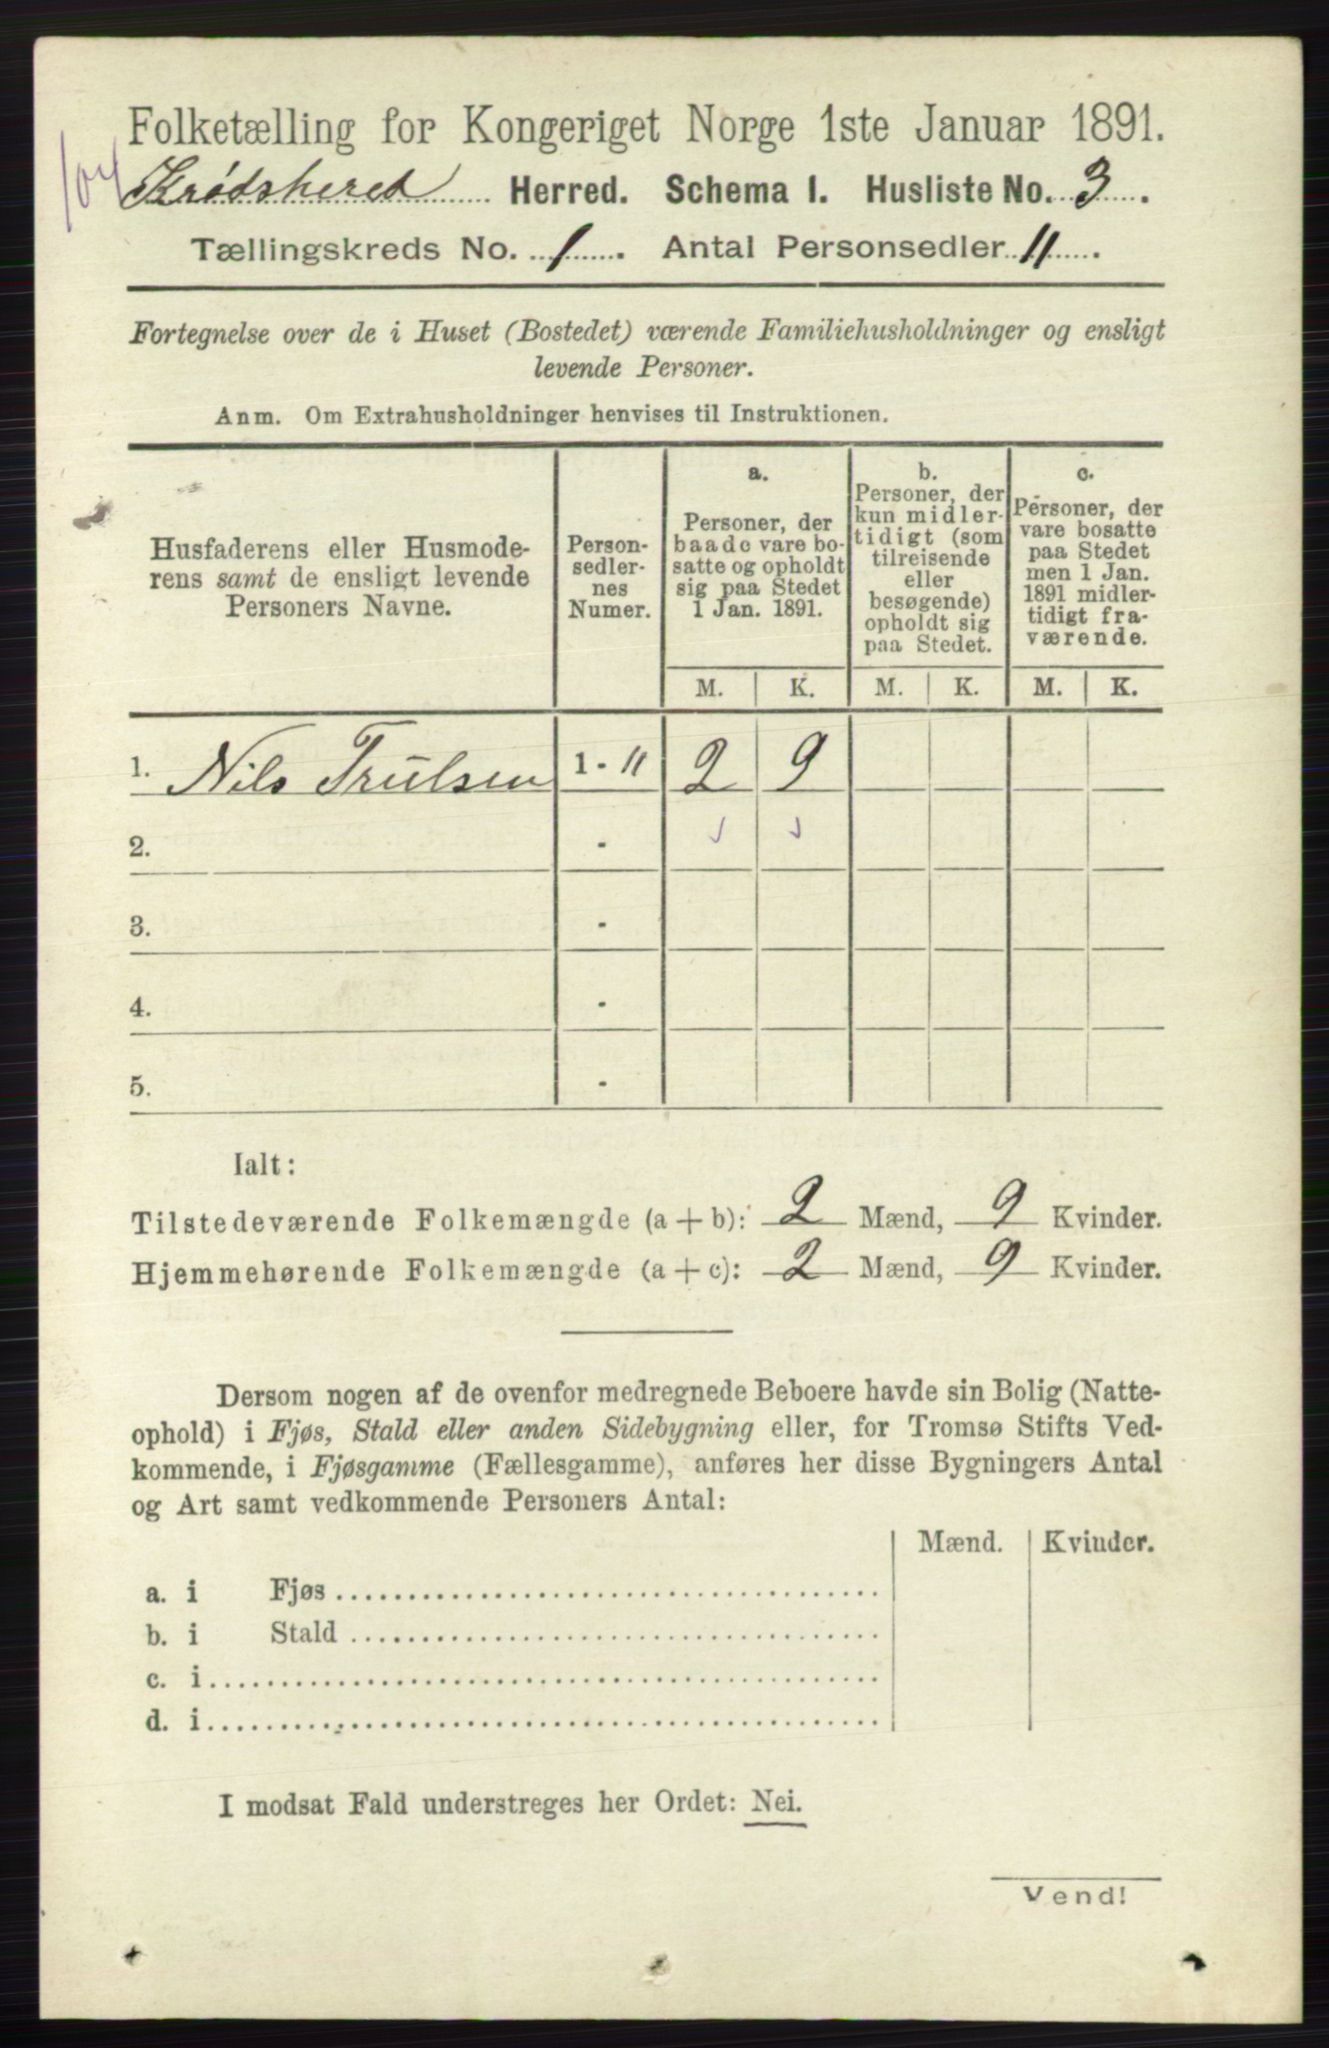 Folketælling for Kongeriget Norge 1ste Januar 1891.
104
Krødshered Herred. Schema 1. Husliste No. 3.
Tællingskreds No. 1. Antal Personsedler 11.
Fortegnelse over de i Huset (Bostedet) værende Familiehusholdninger og ensligt
levende Personer.
Anm. Om Extrahusholdninger henvises til Instruktionen.
Husfaderens eller Husmode-
rens samt de ensligt levende
Personers Navne.
Person-
sedler-
nes
Numer.
a.
Personer, der
baade vare bo-
satte og opholdt
sig paa Stedet
1 Jan. 1891.
b.
Personer, der
kun midler-
tidigt (som
tilreisende
eller
besøgende)
opholdt sig
paa Stedet.
c.
Personer, der
vare bosatte
paa Stedet
men 1 Jan.
1891 midler-
tidigt fra-
værende.
M. K. M. K. M. K.
1. Nils Trulsen 1 - 11 2 9
2. -
3. -
4. -
5. -
Ialt:
Tilstedeværende Folkemængde (a + b): 2 Mænd, 9 Kvinder.
Hjemmehørende Folkemængde (a + c): 2 Mænd, 9 Kvinder.
Dersom nogen af de ovenfor medregnede Beboere havde sin Bolig (Natte-
ophold) i Fjøs, Stald eller anden Sidebygning eller, for Tromsø Stifts Ved-
kommende, i Fjøsgamme (Fællesgamme), anføres her disse Bygningers Antal
og Art samt vedkommende Personers Antal:
Mænd. Kvinder.
a. i Fjøs
b. i Stald
c. i
d. i
I modsat Fald understreges her Ordet: Nei.
Vend!